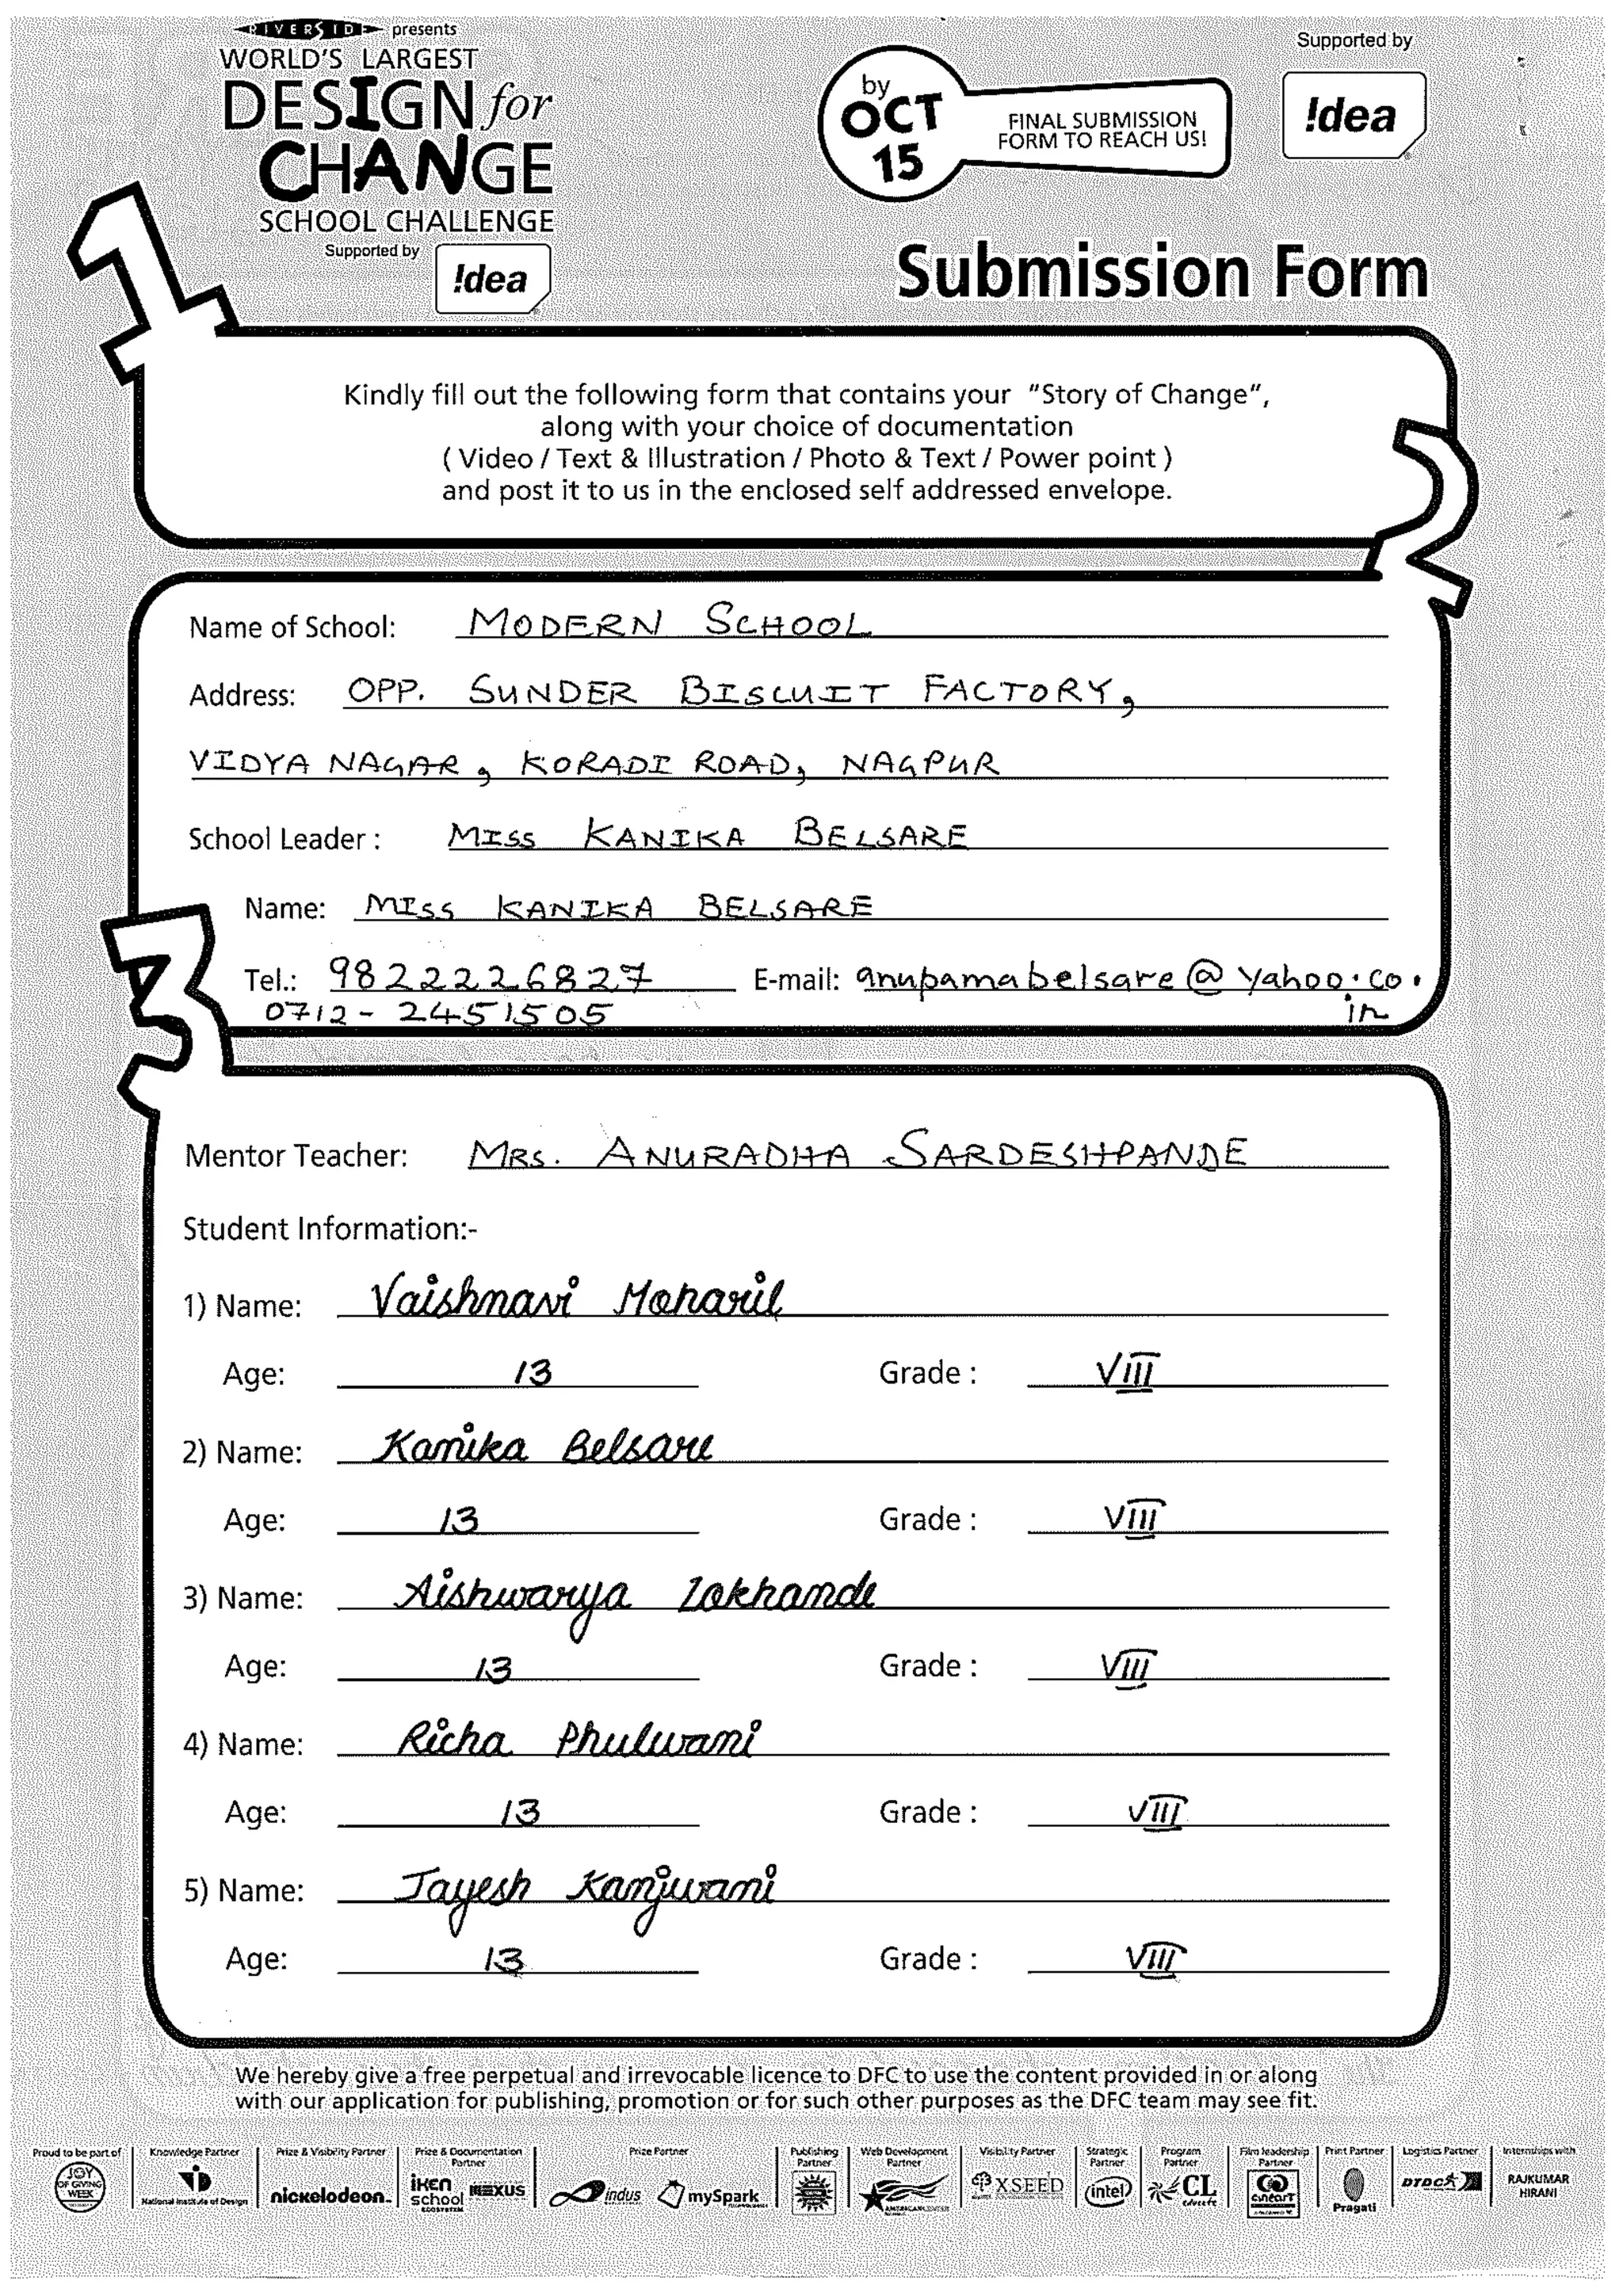 RIVERSIDE presents
WORLD'S LARGEST
DESIGN for
CHANGE
SCHOOL CHALLENGE
Supported by
!dea
by
OCT
15
FINAL SUBMISSION
FORM TO REACH US!
Supported by
!dea
Submission Form
1
Kindly fill out the following form that contains your "Story of Change",
along with your choice of documentation
( Video / Text & Illustration / Photo & Text / Power point )
and post it to us in the enclosed self addressed envelope.
2
Name of School: MODERN SCHOOL
Address: OPP. SUNDER BISCUIT FACTORY,
VIDYA NAGAR, KORADI ROAD, NAGPUR
School Leader : MISS KANIKA BELSARE
Name: MISS KANIKA BELSARE
Tel.: 9822226827 E-mail: anupamabelsare@yahoo.co.
0712-2451505 in
3
Mentor Teacher: MRS. ANURADHA SARDESHPANDE
Student Information:-
1) Name: Vaishnavi Moharil
Age: 13 Grade : VIII
2) Name: Kanika Belsare
Age: 13 Grade : VIII
3) Name: Aishwarya Lokhande
Age: 13 Grade : VIII
4) Name: Richa Phulwani
Age: 13 Grade : VIII
5) Name: Jayesh Kanjwani
Age: 13 Grade : VIII
We hereby give a free perpetual and irrevocable licence to DFC to use the content provided in or along
with our application for publishing, promotion or for such other purposes as the DFC team may see fit.
Proud to be part of
JOY
OF GIVING
WEEK
Knowledge Partner
National Institute of Design
Prize & Visibility Partner
nickelodeon
Prize & Documentation
Partner
iken
school
ECOSYSTEM
NEXUS
Prize Partner
indus
mySpark
Publishing
Partner
Web Development
Partner
AMERICAN CENTER
Visibility Partner
XSEED
Strategic
Partner
intel
Program
Partner
CL
educate
Film leadership
Partner
Print Partner
Pragati
Logistics Partner
DTDC
Internships with
RAJKUMAR
HIRANI